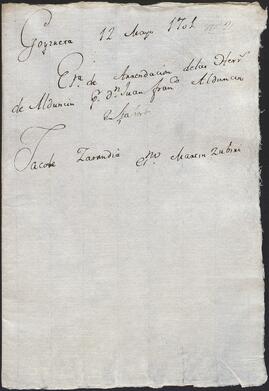 Goyzueta 12 Mayo 1701
Esra de Arrendacion de las Herrs
de Alduncin pr Dn Juan Franco Alduncin
Jacobe Zarandia Martin Zubiri